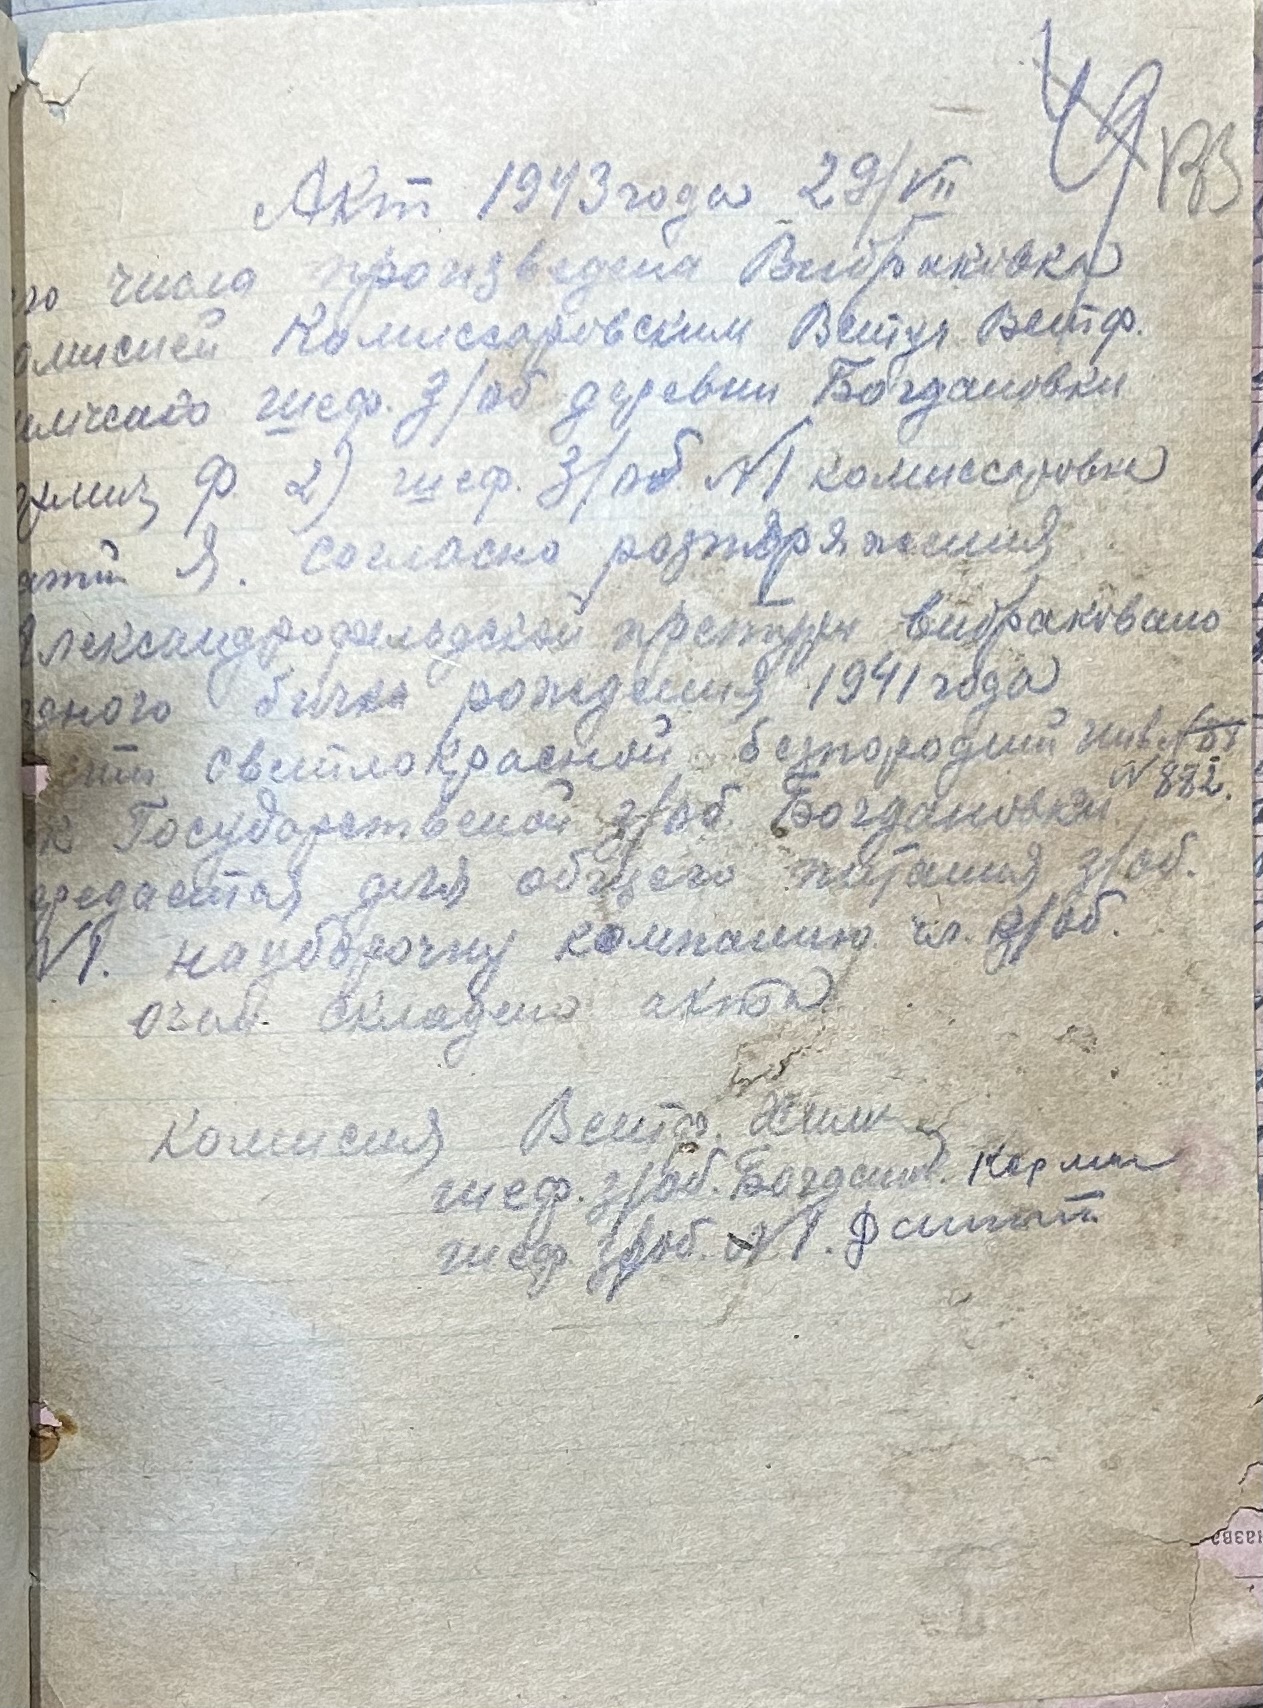 49
Акт 1943 года 29/VII
го числа произведена Вибраковка
омисией Комиссаровским Ветуч Ветф.
шеф. з/об деревни Богдановки
Ф. 2) шеф. З/об. №1 комиссаровки
Я. согласно розпоряжения
Александрофельдской претури вибраковано
одного бичка рождения 1941 года
светлокрасной безпородний инв.
№ 882.
Государственой з/об. Богдановки
ередается для общего питания з/об.
№1. на уборочну компанию чл. з/об.
очем складено акта
Комисия Ветф.
шеф. з/об. Богданов. Керман
шеф з/об. №1.
назва